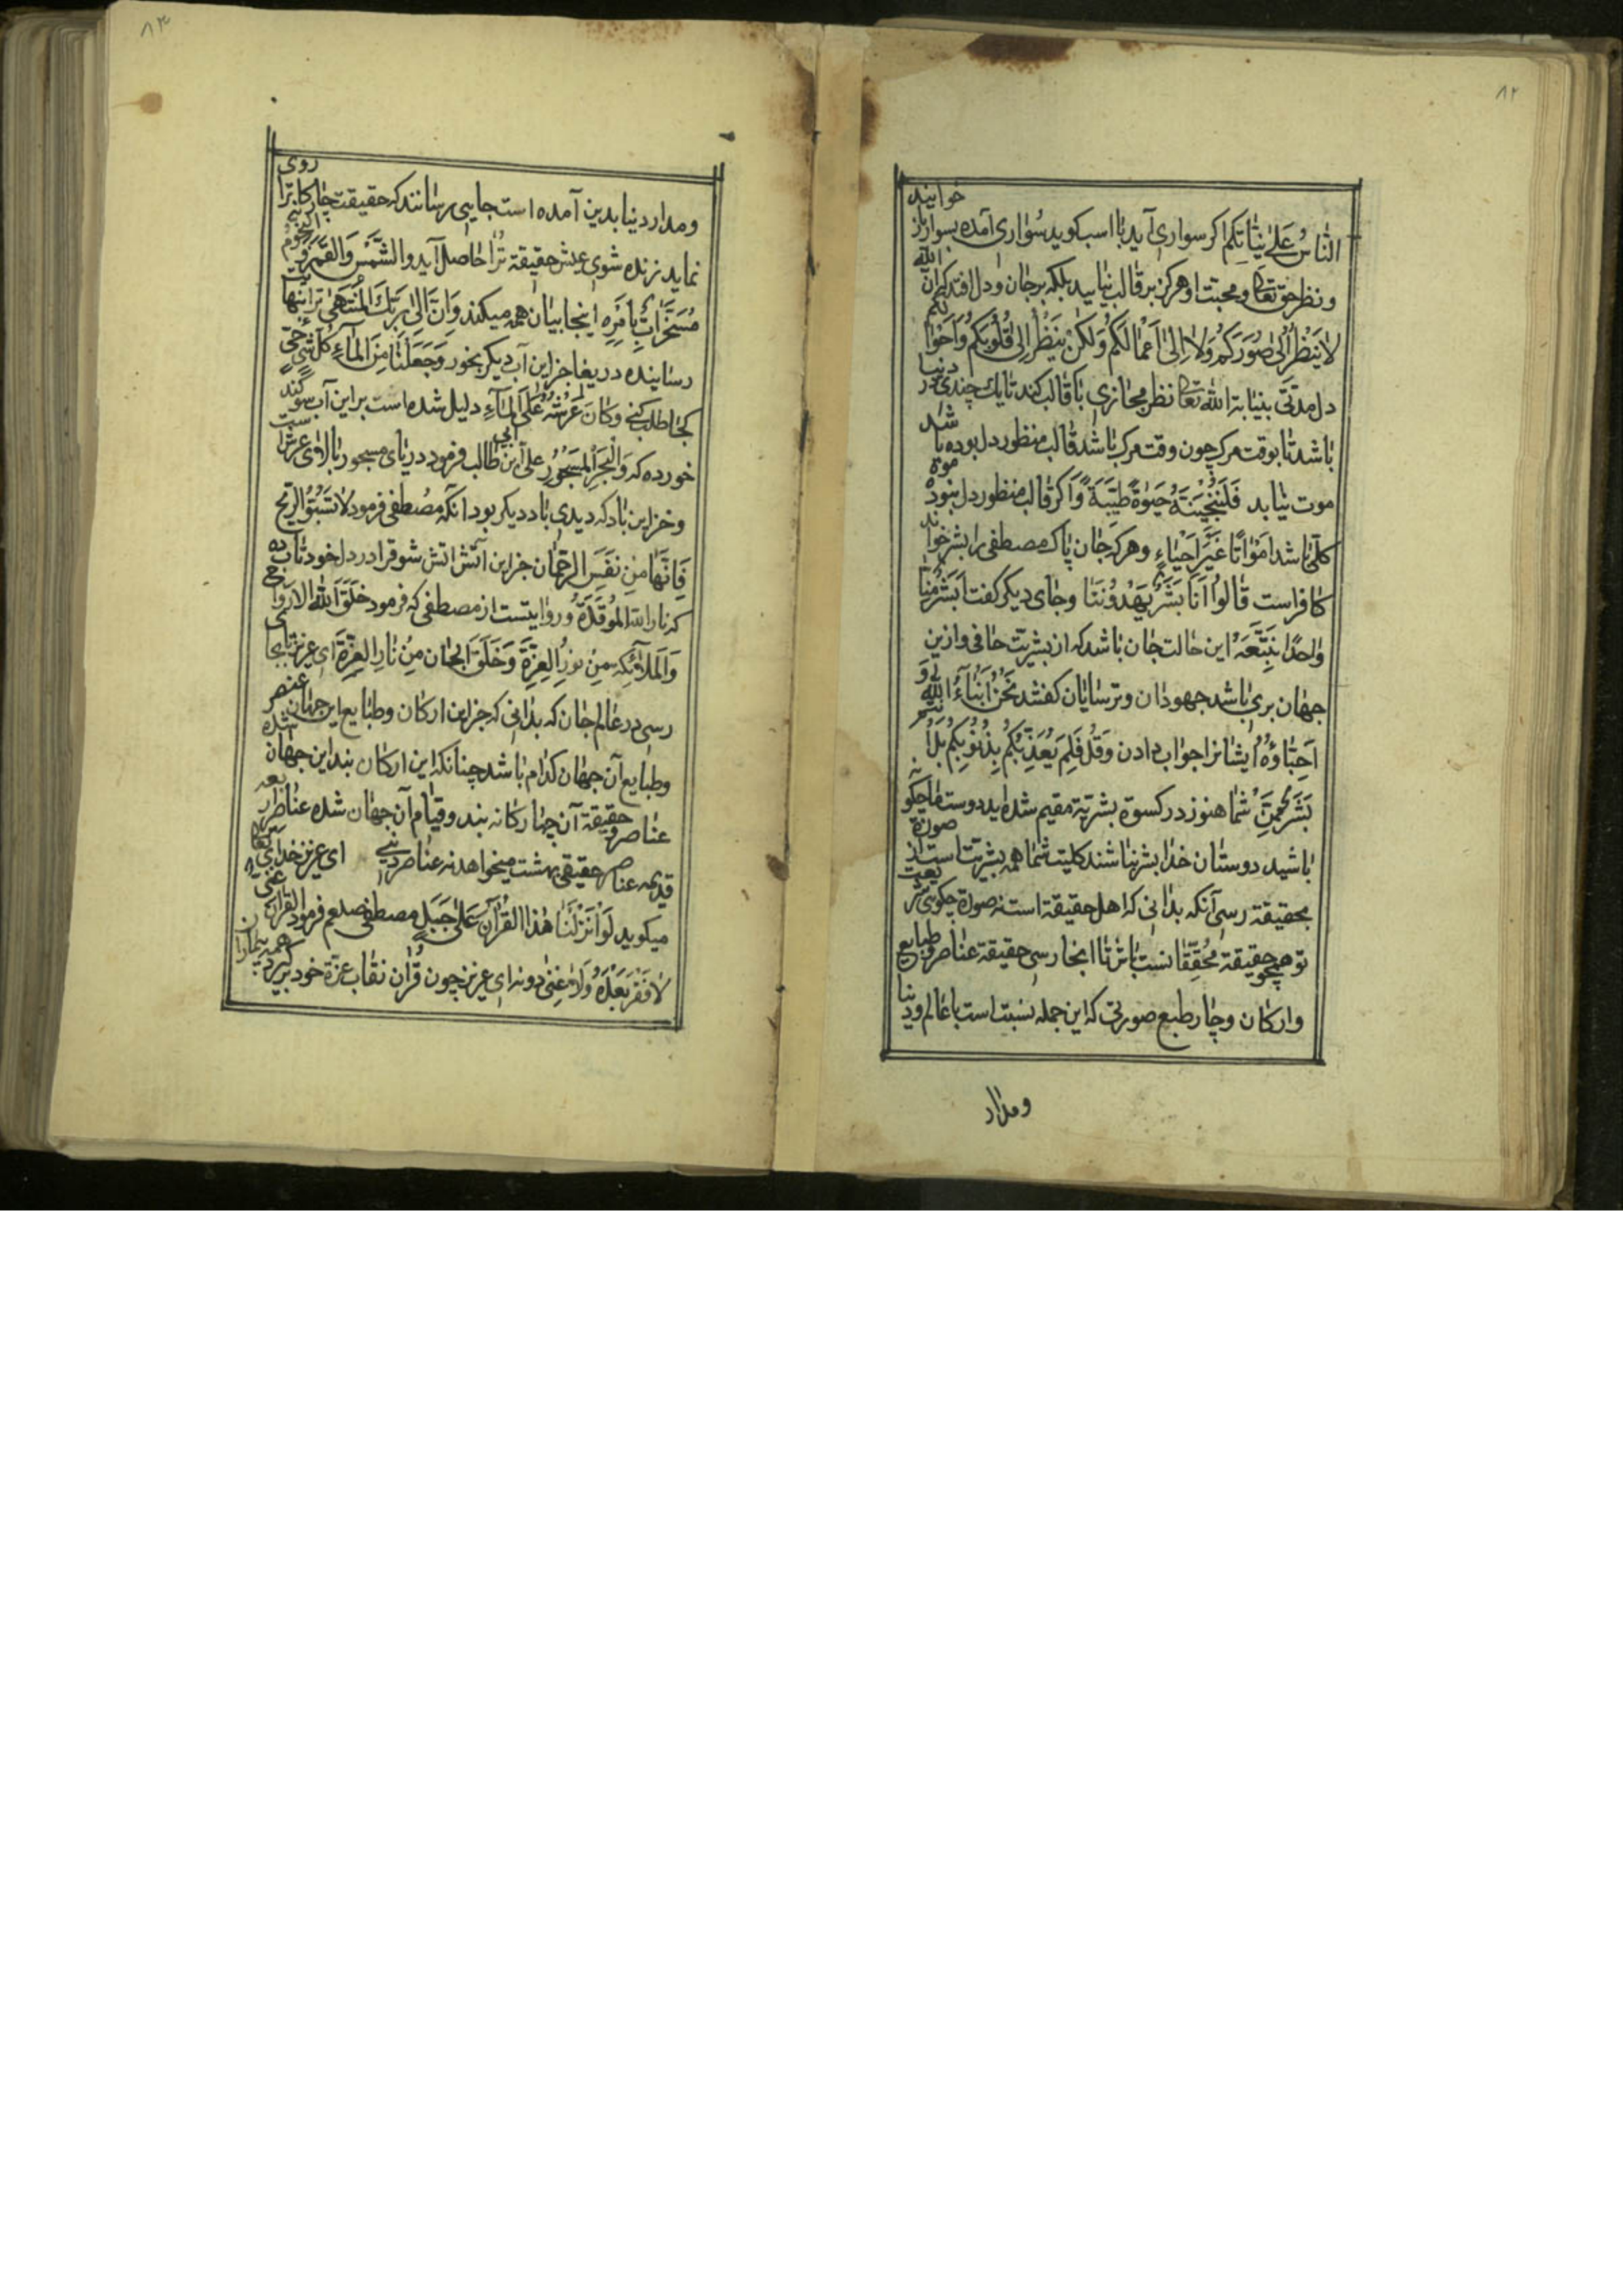 ۸۲
خوانید
الناسُ عَلَىٰ نِيَّاتِكُم اکر سواری آید با اسب کوید سُواری آمده بسوار باز
ونظر حق تعا ومحبت او هرکز بر قالب نیاید بلکه بر جان ودل افتد که اِنَّ الله
لا يَنْظُرُ اِلىٰ صُوَرِكُم وَلَا اِلىٰ اَعْمَالِكُم وَلٰكِنْ يَنْظُرُ اِلىٰ قُلُوبِكُم وَاَحْوَالِكُم
دل مدتی بنیابة الله تعا نظر مجازی با قالب کند تا یک چندی در دنیا
باشد تا بوقت مرک چون وقت مرک باشد قالب منظور دل بوده باشد
موت نیابد فَلَنُحْيِيَنَّهُ حَيٰوةً طَيِّبَةً وَاکر قالب منظور دل نبود موة
کلّی باشد اَمْوَاتًا غَيْرَ اَحْيَاءٍ وهرکه جان پاک مصطفی را بشر خواند
کافر است قَالُوا اَنَا بَشَرٌ يَهْدُونَنَا وجای دیکر کفت اَبَشَرٌ مِنَّا
وٰاحِدًا نَتَّبِعُهُ این حالت جان باشد که از بشریّت حافی وازین
جهان بری باشد جهودان وترسایان کفتند نَحْنُ اَبْنَاءُ الله وَ
اَحِبَّاؤُهُ ایشانرا جواب دادن وَقُلْ فَلِمَ يُعَذِّبُكُم بِذُنُوبِكُم بَلْ اَنْتُمْ
بَشَرٌ مِمَّنْ شما هنوز در کسوة بشریّة مقیم شده اید دوست ما چکونه
باشید دوستان خدا بشر نباشند کلیت شما همه بشریّت است از صورة
بحقیقة رسی آنکه بدانی که اهل حقیقة است نه صورة چکویی تر
تو هیچ حقیقة محُقِّقٰا نست باش تا انجا رسی حقیقة عناصر وطبایع
وارکان وچار طبع صورتی که این جمله نسبت است با عالم ودنیا
ومدار
۸۳
روی
ومدار دنیا بدین آمده است جایی رسانند که حقیقت چار کانرا
نماید زنده شوی عیش حقیقة تُرا حاصل آید والشَّمْسَ وَالقَمَرَ وَالنُّجُومُ
مُسَخَّرَاتٌ بِاَمْرِهِ اینجا بیان همه میکند وَاِنَّ اِلىٰ رَبِّكَ المُنْتَهىٰ ترا بنهایت
رساینده دریغا جز این آب دیکر بخور وَجَعَلْنَا مِنَ المَآءِ كُلَّ شَیْءٍ حَیٍّ
کجا طلب کنی وَكَانَ عَرْشُهُ عَلَی المَآءِ دلیل شده است بر این آب سوکند
خورده که وَالْبَحْرِ المَسْجُورِ علی بن ابی طالب فرمود دریای مسجور بالاوی عرش است
وخز این باد که دیدی باد دیکر بود آنکه مصُطفی فرمود لاٰ تَسُبُّوُا الرِّیحَ
فَاِنَّهَا مِنْ نَفَسِ الرَّحْمٰانِ جز این اتش اتش شوقرا در دل خود تاب ده
که نار اللّه المُوقَدَةُ ورُوایتست از مصطفی که فرمود خَلَقَ اللّٰهُ الارواح
وَالمَلآئِكَةِ مِنْ نُورِ العِزَّةِ وَخَلَقَ الجٰان مِنْ نارِ العِزَّةِ ای عزیز تا بجایی
رسی در عٰالم جان که بدانی که جز این ارکان وطبایع این جهان عنصر
وطبایع آن جهان کدام باشد چنانکه این ارکان بند این جهان شده
عناصر حقیقة آن چهار کانه بند وقیام آن جهان شده عناصر اربعه
قدیمه عناصر حقیقی بهشت میخواهد نه عناصر دنیی ای عزیز خدای تعا
میکوید لَوْ اَنْزَلْنَا هٰذَا القُرْآنَ عَلىٰ جَبَلٍ مصطفی صلعم فرمود القرآن غنی
لا فَقْرَ بَعْدَهُ وَلَا غِنىٰ دونه ای عزیز چون قُرْآن نقاب عزّة خود برکیرد همه بیماران